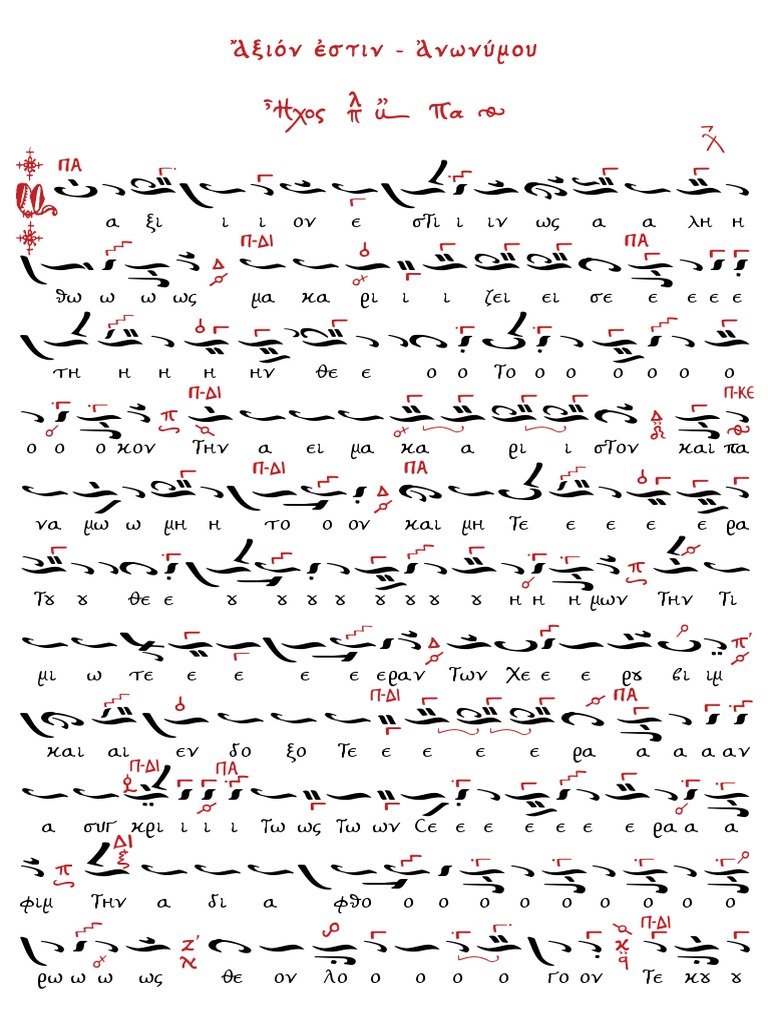 Ἄξιόν ἐστιν - Ἀνωνύμου
Ἦχος λ π ἅ Πα
ΠΑ
α ξι ι ι ον ε στι ι ιν ως α α λη η
Π-ΔΙ ΠΑ
θω ω ω ως Δ μα κα ρι ι ι ζει ει σε ε ε ε ε
τη η η η ην θε ε ο ο το ο ο ο ο ο ο
Π-ΔΙ Π-ΚΕ
ο ο ο κον π την α ει μα κα α ρι ι στον Δ και πα
Π-ΔΙ ΠΑ
να μω ω μη η το ο ον Δ και μη τε ε ε ε ε ρα
του ου θε ε ου ου ου ου ου ου ου ου η η η μων π την τι
μι ω τε ε ε ε ε εραν Δ των χε ε ε ρου βι ιμ π΄
Π-ΔΙ ΠΑ
και αι εν δο ξο τε ε ε ε ε ρα α α α αν
Π-ΔΙ ΠΑ
α συγ κρι ι ι ι τω ως τω ων σε ε ε ε ε ε ε ρα α α
ΔΙ
φιμ π την α δι α φθο ο ο ο ο ο ο ο ο ο
Π-ΔΙ
ρω ω ω ως Ζ΄ θε ον λο ο ο ο ο γο ον τε κου ου